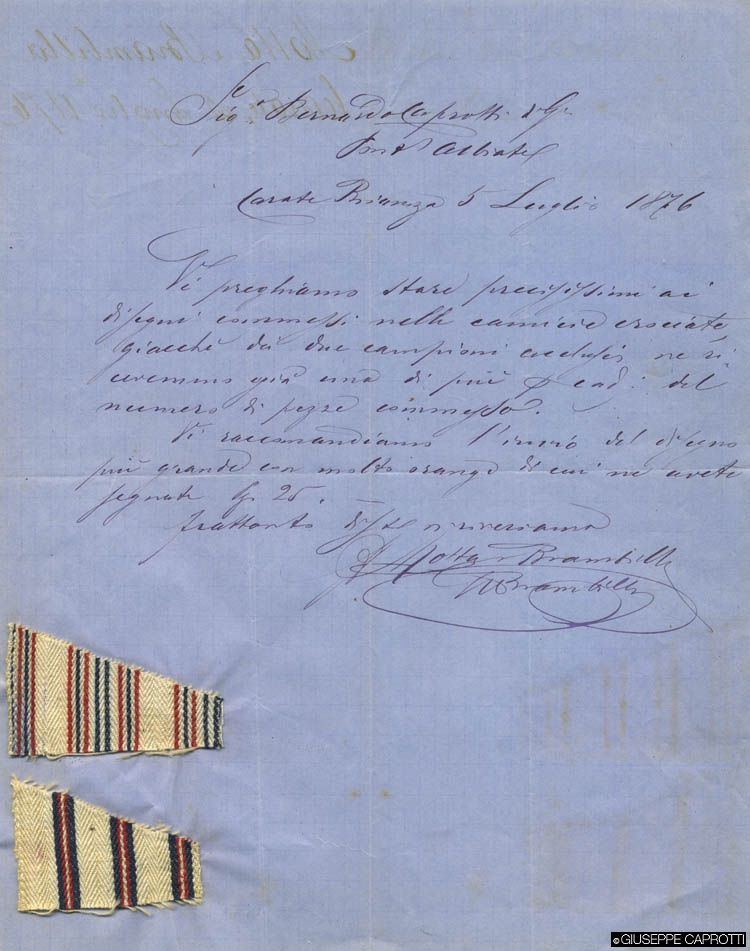 Sig.i Bernardo Caprotti & G.
Albiate
Carate Brianza 5 Luglio 1876
Vi preghiamo stare precisissimi ai
disegni commessi nelle camicie crociate,
giacchè dei due campioni acclusi, ne ri
ceremmo già una di più cad. del
numero di pezze commesso.
Vi raccomandiamo l'invio del disegno
più grande con molto orange di cui ne avete
segnate 25.
frattanto vi riveriamo
Motta & Brambilla
Brambilla
Motta e Brambilla
1876
©GIUSEPPE CAPROTTI